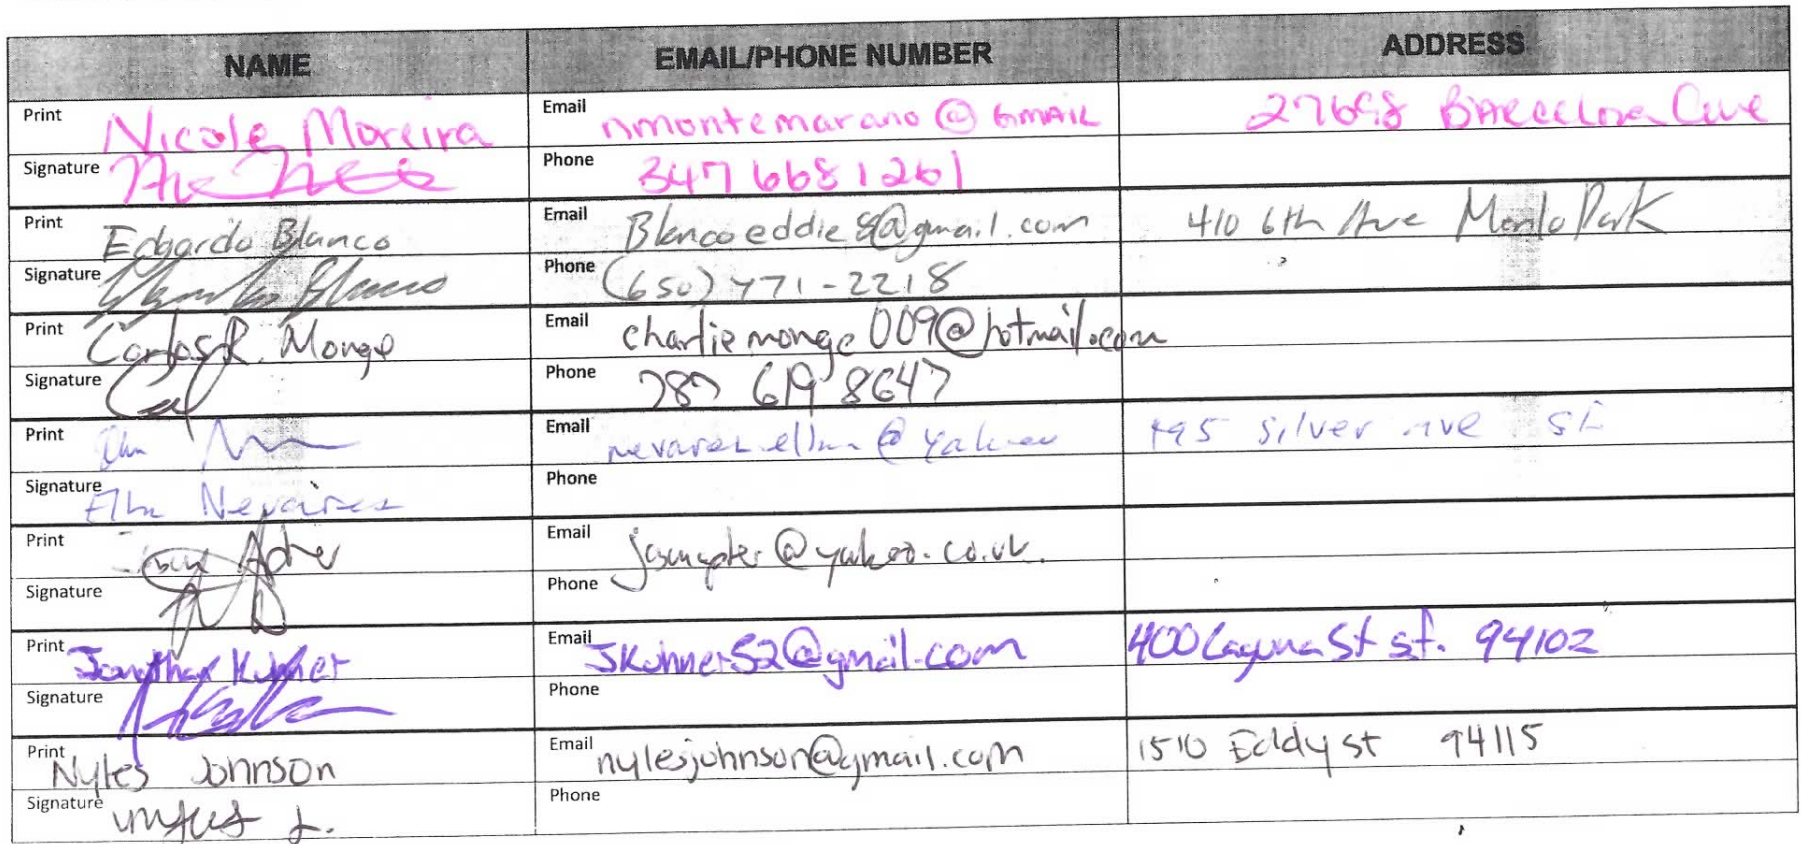 NAME EMAIL/PHONE NUMBER ADDRESS
Print Nicole Moreira Email nmontemarano@GMAIL 27698 Barcelona Ave
Signature Phone 347 668 1261
Print Edgardo Blanco Email Blancoeddie8@gmail.com 410 6th Ave Menlo Park
Signature Phone (650) 771-2218
Print Carlos R. Monge Email charliemonge009@hotmail.com
Signature Phone 787 619 8647
Print Email Silver Ave SF
Signature Elba Nevarez Phone
Print Email
Signature Phone
Print Jonathan Kuhner Email JKuhner52@gmail.com 400 Laguna St sf. 94102
Signature Phone
Print Nyles Johnson Email nylesjohnson@gmail.com 1510 Eddy st 94115
Signature Phone